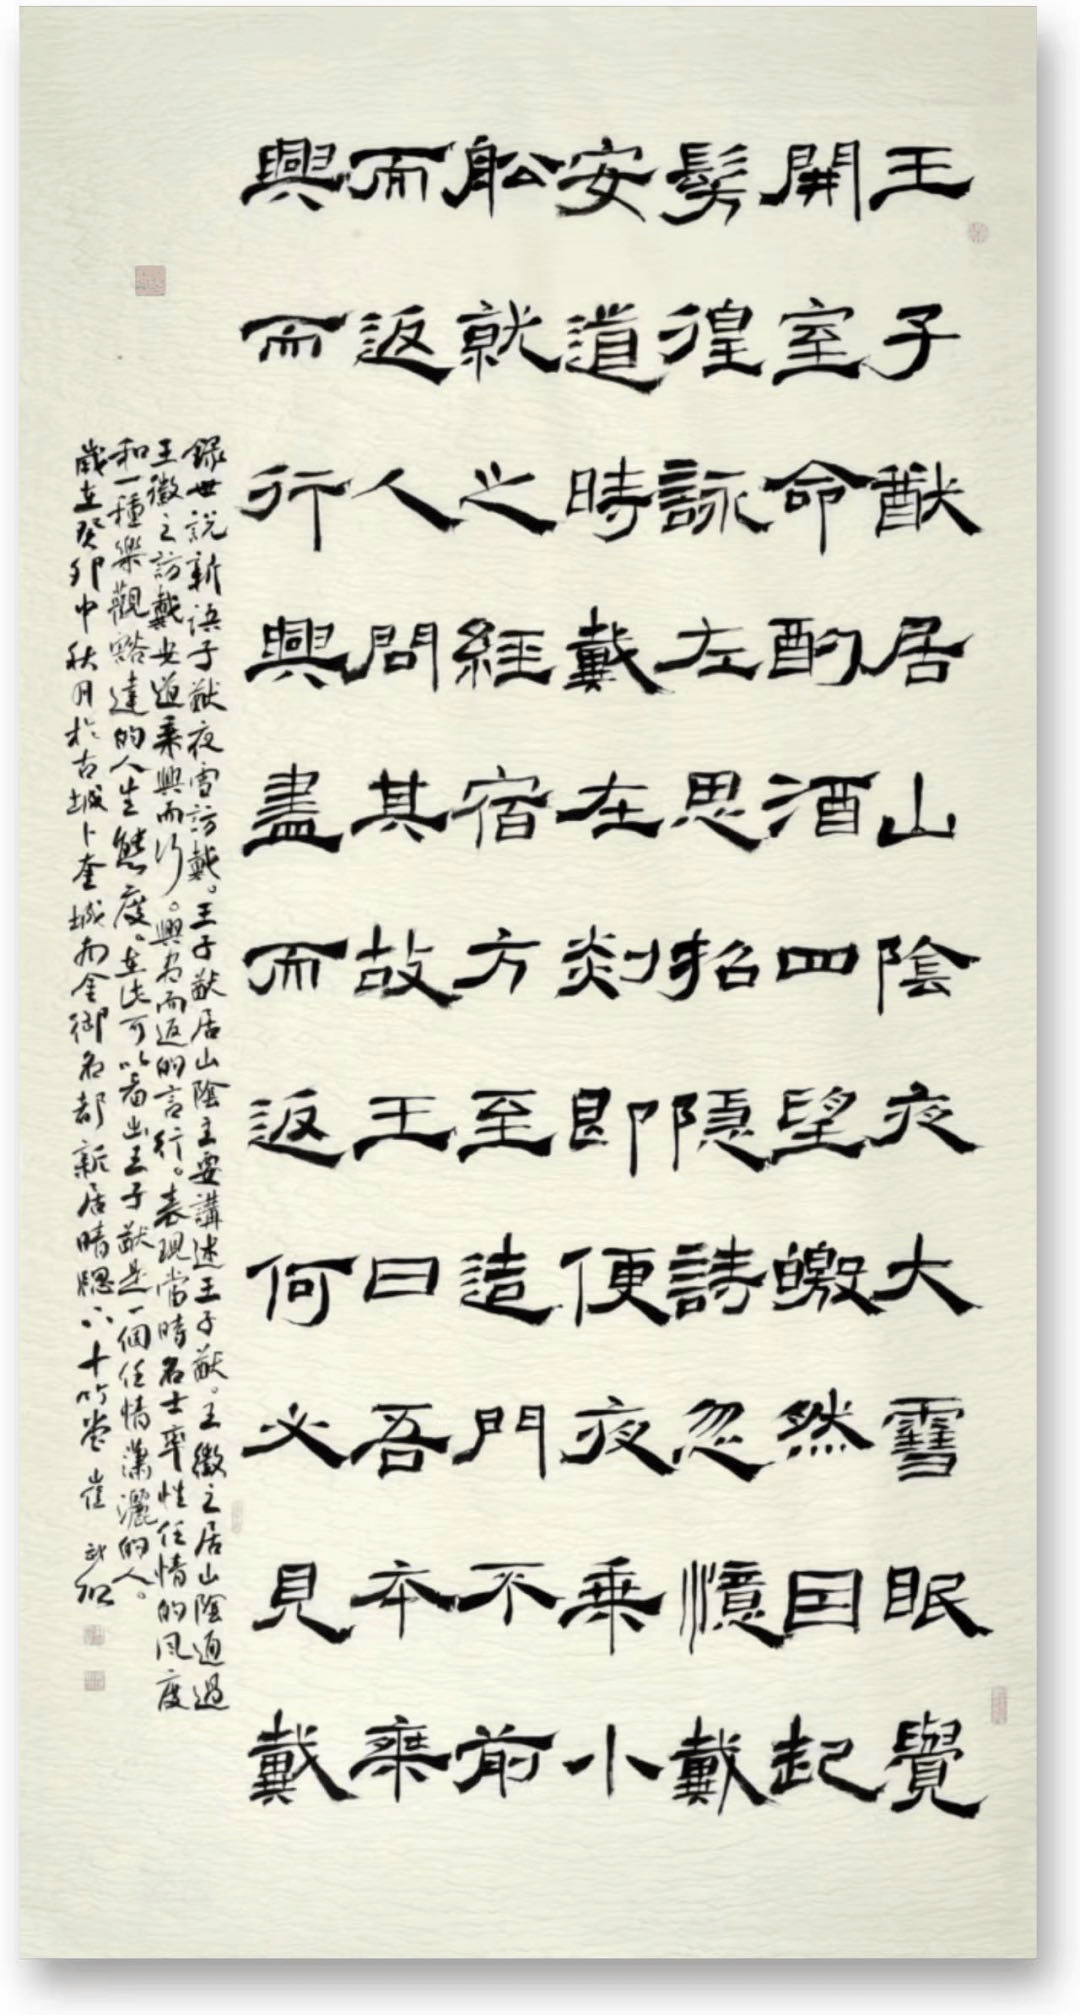 王子猷居山陰夜大雪眠覺
開室命酌酒四望皦然因起
髣徨詠左思招隱詩忽憶戴
安道時戴在剡即夜便乘小
舩就之經宿方至造門不前
而返人問其故王曰吾本乘
興而行興盡而返何必見戴
錄世說新語子猷夜雪訪戴。王子猷居山陰主要講述王子猷。王徽之居山陰通過
王徽之訪戴安道乘興而行。興尽而返的言行。表現當時名士率性任情的风度
和一種樂觀豁達的人生態度。在此可以看出王子猷是一個任情瀟灑的人。
歲在癸卯中秋月於古城卜奎城南金御名都新居晴窗八十竹堂崔